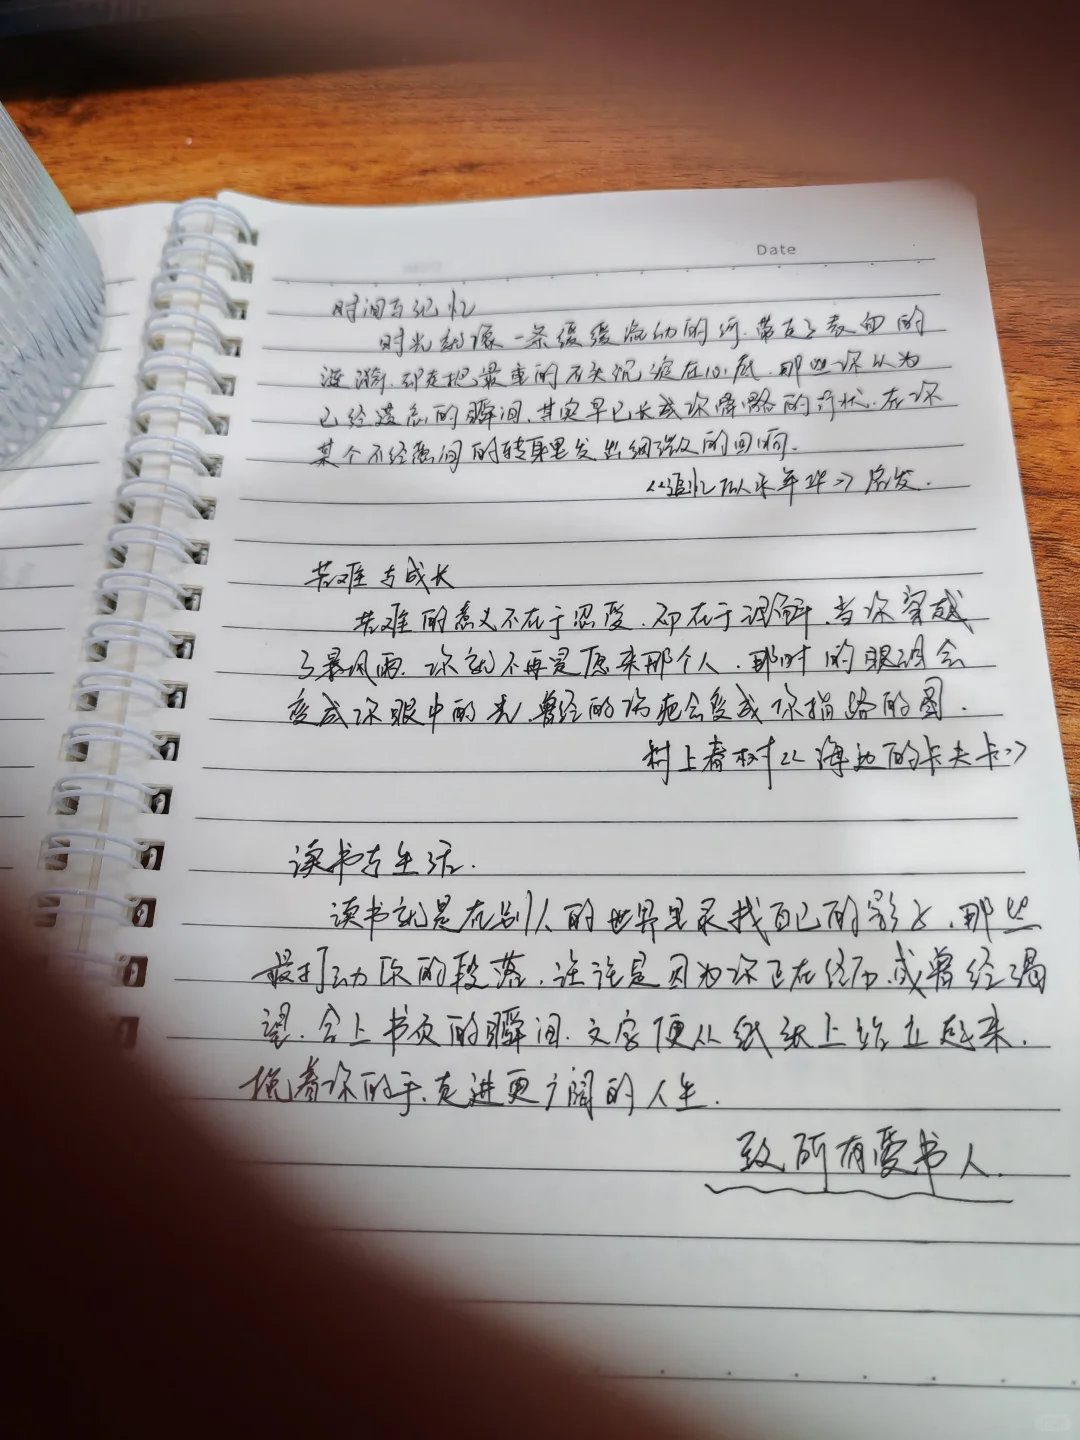 Date
时间与记忆
时光就像一条缓缓流动的河.带走了表面的
涟漪.却在把最重的石头沉淀在心底.那些你以为
已经遗忘的瞬间.其实早已长成你骨骼的形状.在你
某个不经意间的转身里发出细微的回响.
《追忆似水年华》启发.
苦难与成长
苦难的意义不在于忍受.却在于理解.当你穿越
了暴风雨.你就不再是原来那个人.那时的眼泪会
变成你眼中的光.曾经的伤疤会变成你指路的图.
村上春树《海边的卡夫卡》
读书与生活.
读书就是在别人的世界里寻找自己的影子.那些
最打动你的段落.往往是因为你正在经历.或曾经渴
望.合上书页的瞬间.文字便从纸张上站立起来.
挽着你的手.走进更广阔的人生.
致所有爱书人.